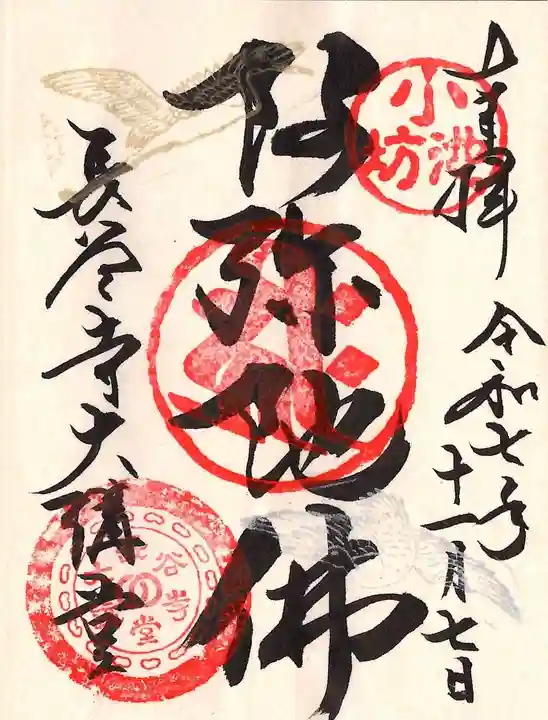 奉拝 令和七年十一月七日
阿弥陀佛
長谷寺大講堂
小池坊
谷寺
堂